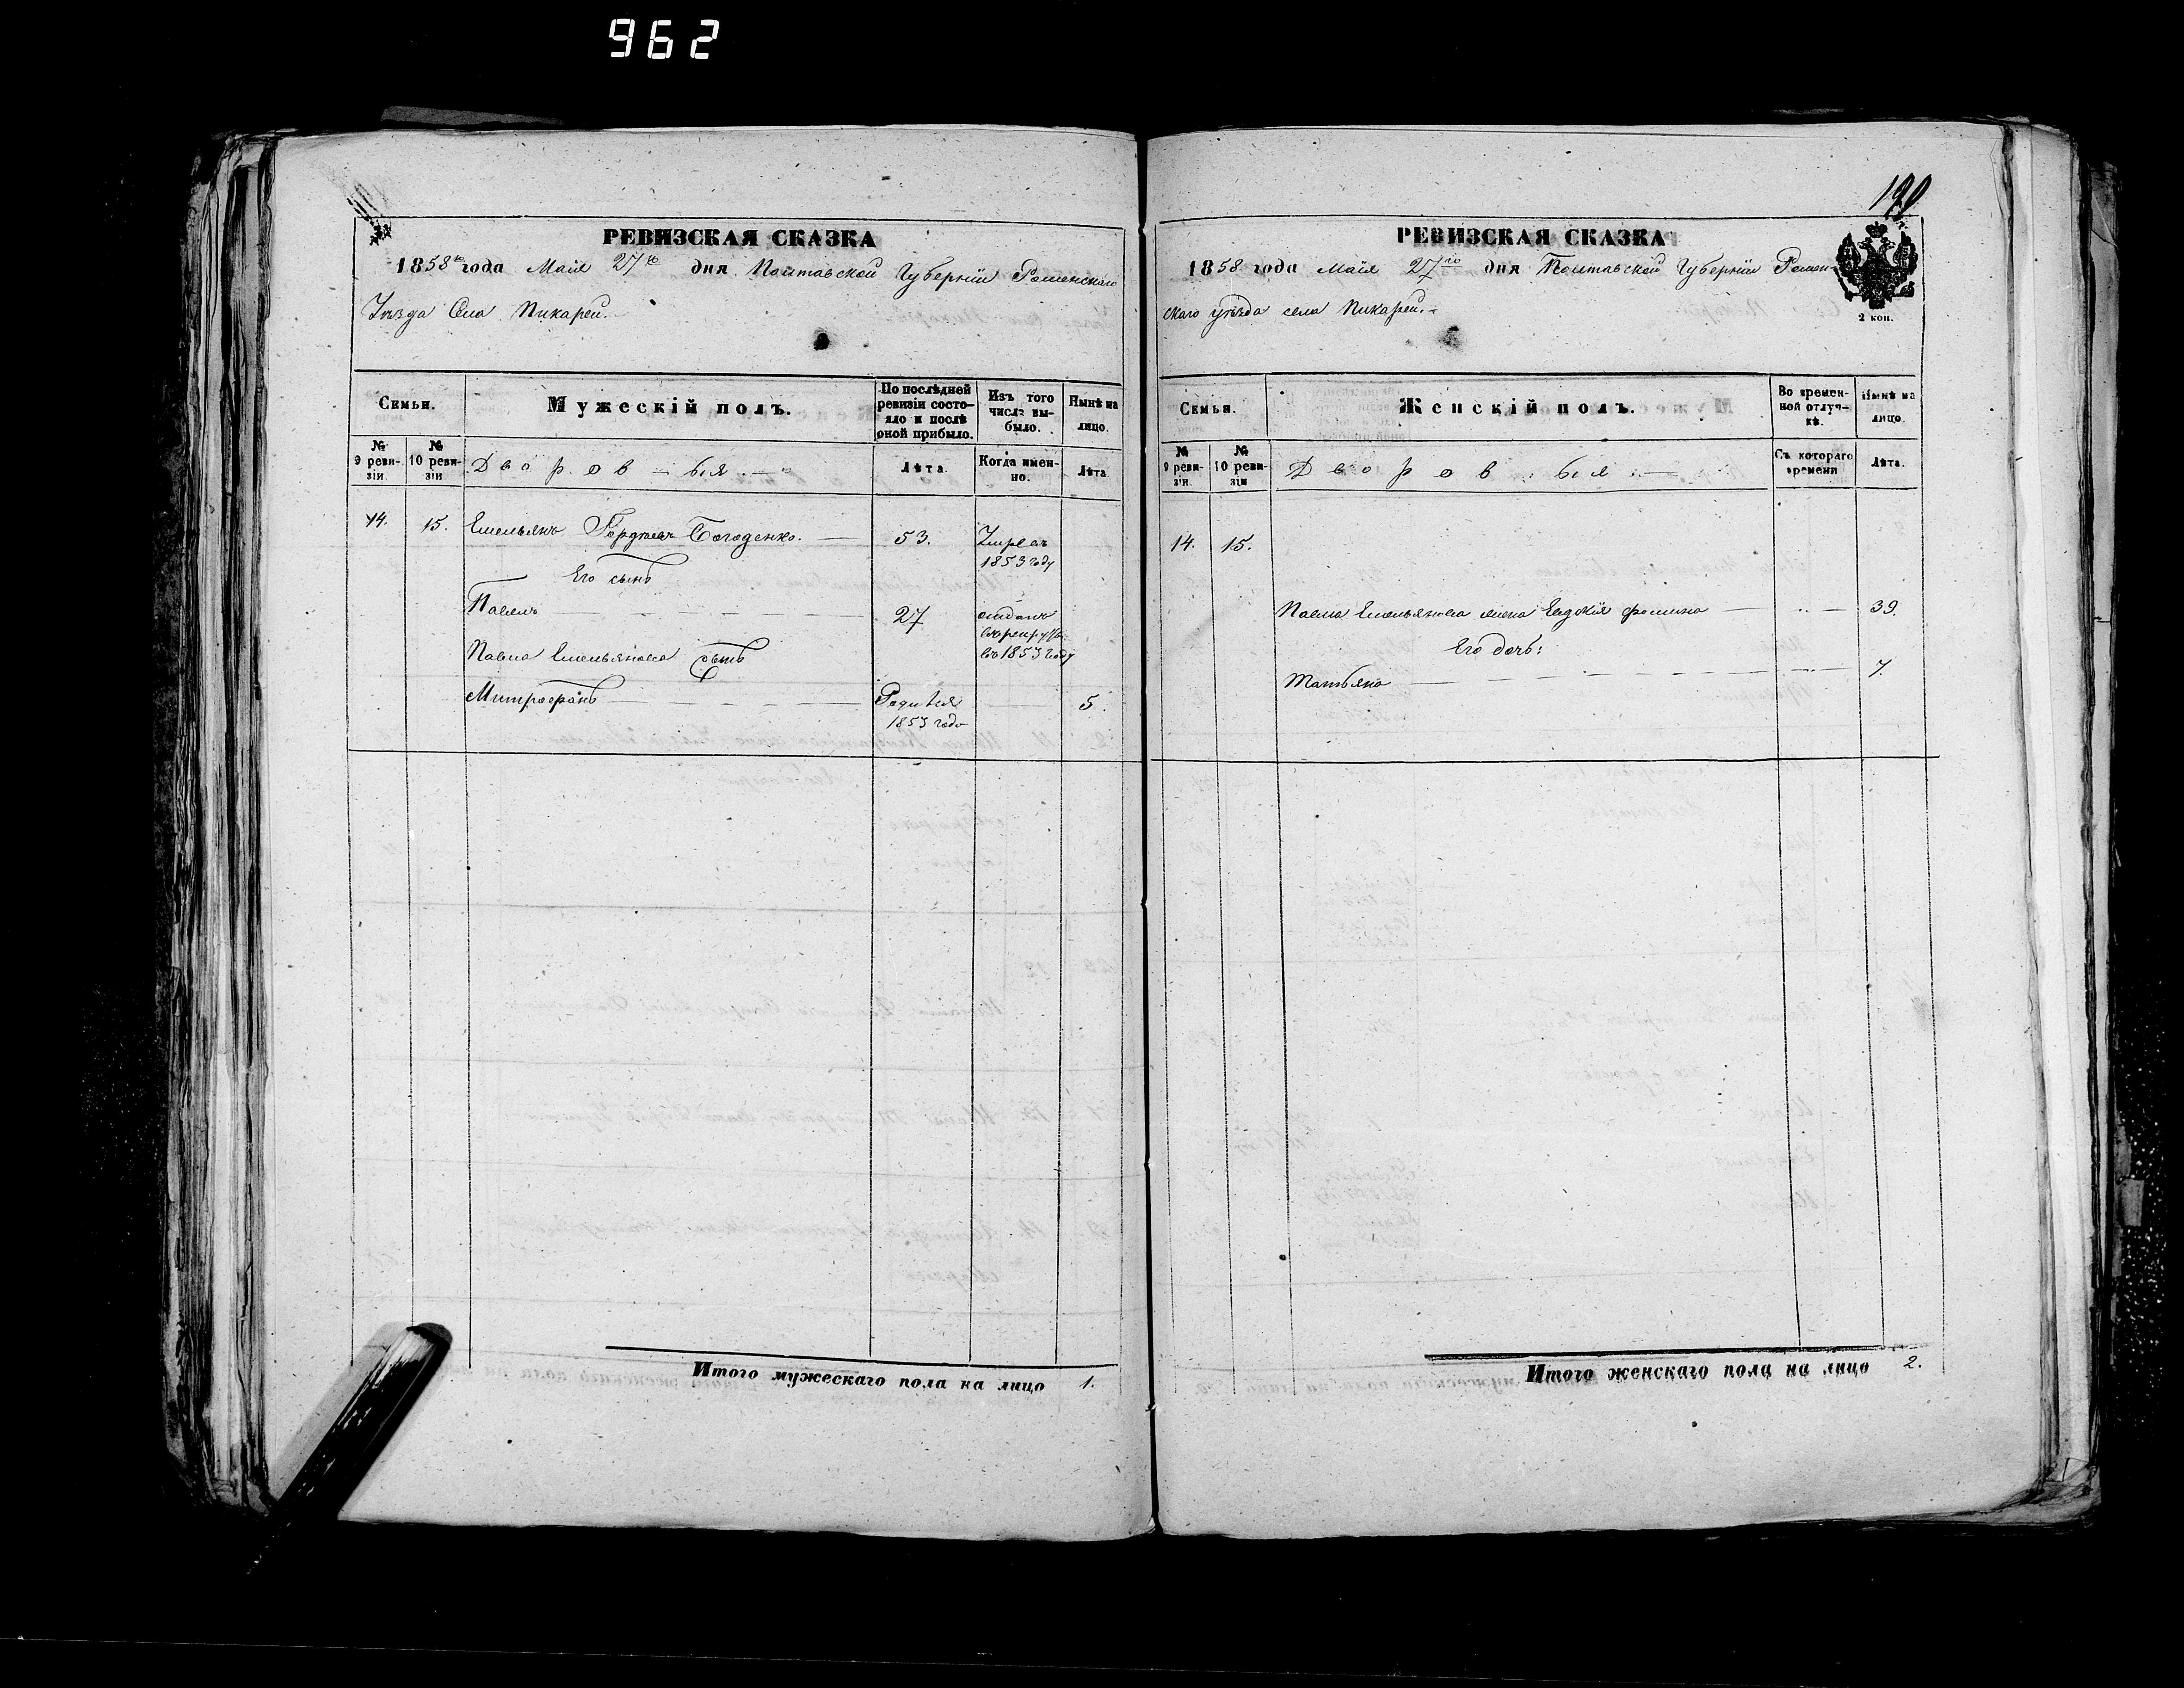 962
РЕВИЗСКАЯ СКАЗКА
1858го года Маія 27го дня Полтавской Губерніи Роменскаго
Уѣзда Села Пикареи.
Семьи.
Мужескій полъ.
По послѣдней ревизіи состояло и послѣ оной прибыло.
Изъ того числа выбыло.
Нынѣ на лицо.
№ 9 ревизіи.
№ 10 ревизіи
Дворовыя
Лѣта.
Когда именно.
Лѣта
14. 15. Емельянъ Богоденко. 53. Умре въ
1853 году
Его сынъ
Павелъ 27 отданъ
въ рекруты
въ 1853 году
Павла Емельянова сынъ
Митрофанъ Родился 5.
1853 года
Итого мужескаго пола на лицо 1.
190
РЕВИЗСКАЯ СКАЗКА
1858 года Маія 27го дня Полтавской Губерніи Ромен-
скаго уѣзда села Пикареи.
2 коп.
Семьи.
Женскій полъ.
Во временной отлучкѣ.
Нынѣ на лицо.
№ 9 ревизіи.
№ 10 ревизіи
Дворовыя
Съ котораго времени
Лѣта.
14. 15.
Павла Емельянова жена Евдокія Фомина 39.
Его дочь:
Татьяна 7.
Итого женскаго пола на лицо 2.